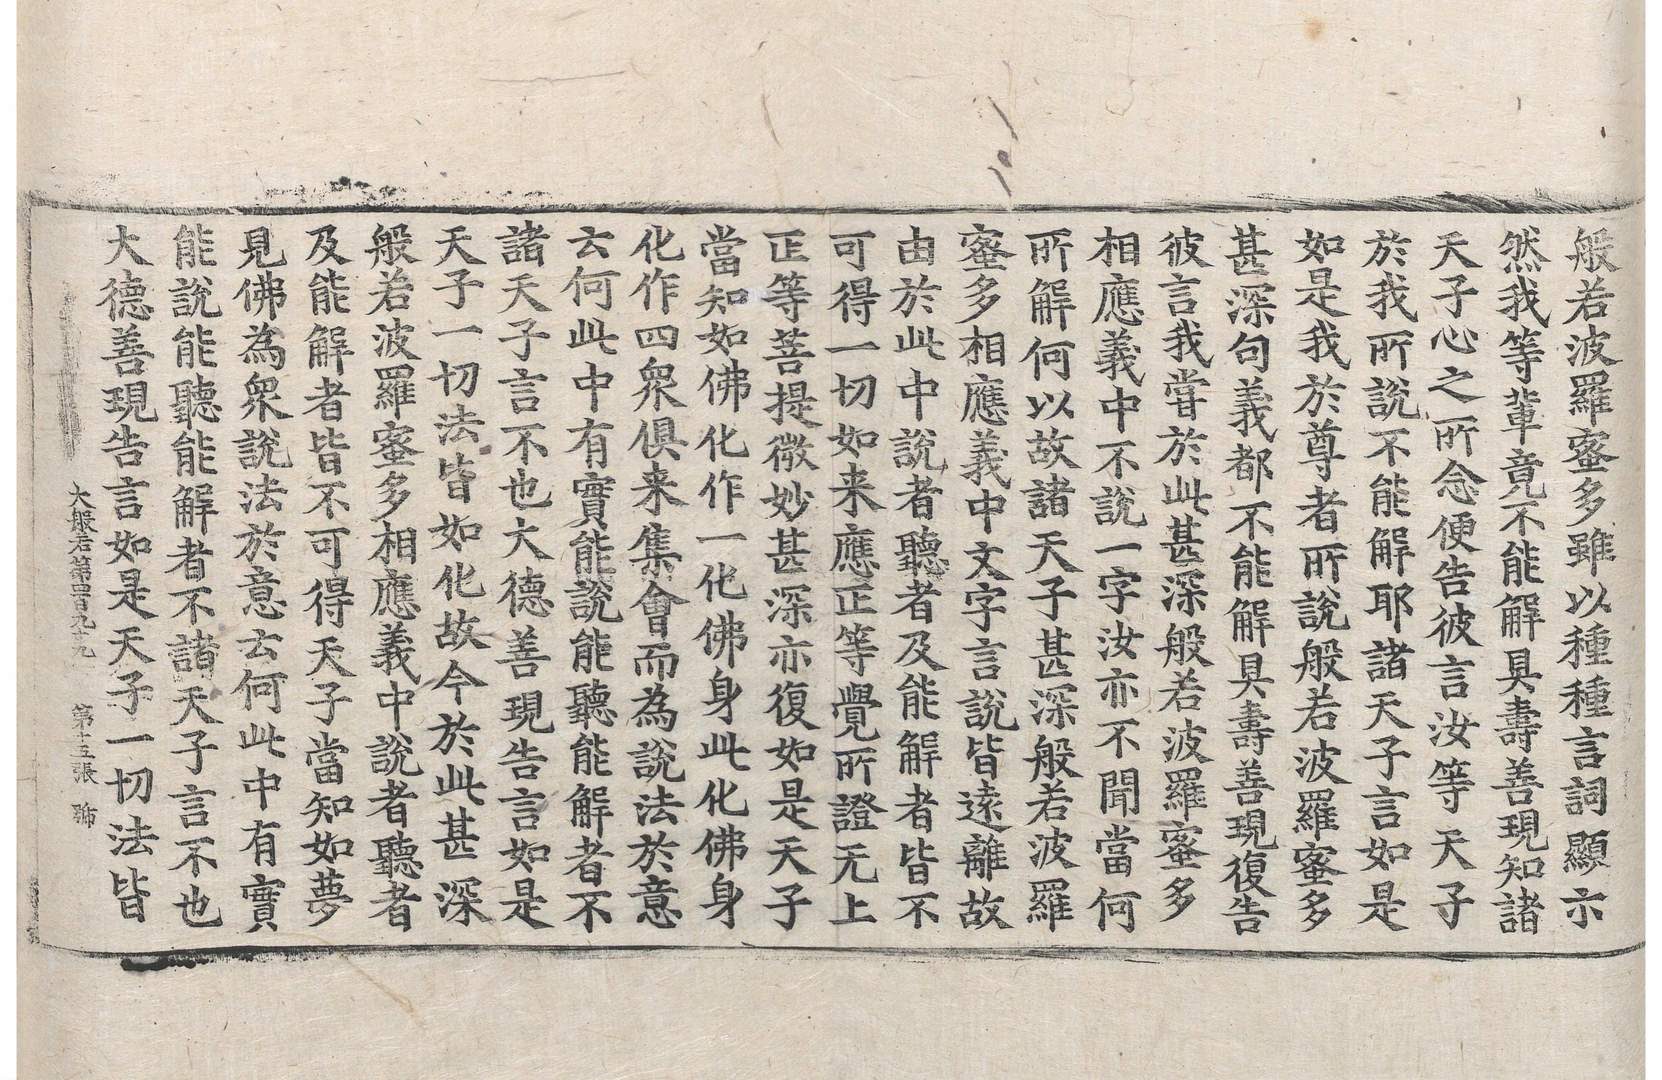 般若波羅蜜多雖以種種言詞顯示
然我等輩竟不能解具壽善現知諸
天子心之所念便告彼言汝等天子
於我所說不能解耶諸天子言如是
如是我於尊者所說般若波羅蜜多
甚深句義都不能解具壽善現復告
彼言我嘗於此甚深般若波羅蜜多
相應義中不說一字汝亦不聞當何
所解何以故諸天子甚深般若波羅
蜜多相應義中文字言說皆遠離故
由於此中說者聽者及能解者皆不
可得一切如来應正等覺所證无上
正等菩提微妙甚深亦復如是天子
當知如佛化作一化佛身此化佛身
化作四眾俱来集會而為說法於意
云何此中有實能說能聽能解者不
諸天子言不也大德善現告言如是
天子一切法皆如化故今於此甚深
般若波羅蜜多相應義中說者聽者
及能解者皆不可得天子當知如夢
見佛為眾說法於意云何此中有實
能說能聽能解者不諸天子言不也
大德善現告言如是天子一切法皆
大般若第四百九十九 第十五張